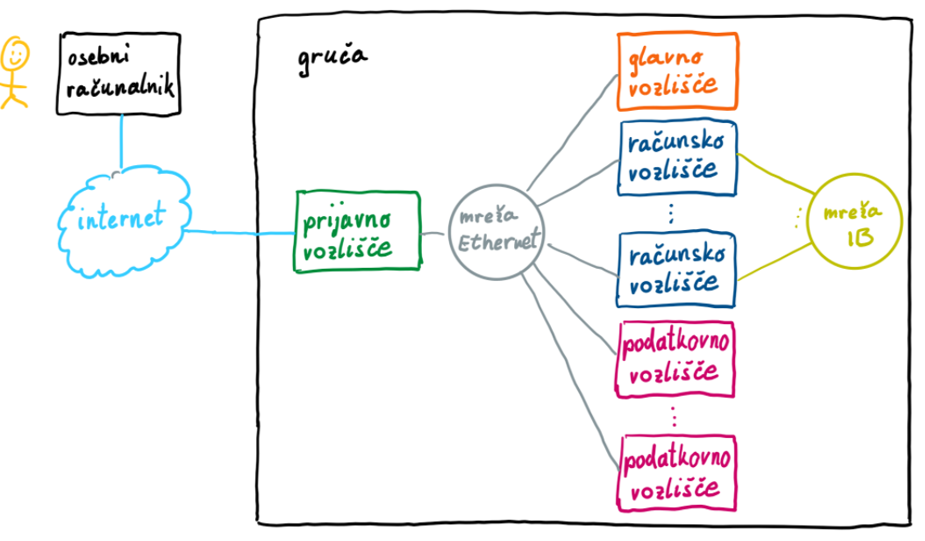 osebni
računalnik
internet
gruča
prijavno
vozlišče
mreža
Ethernet
glavno
vozlišče
računsko
vozlišče
računsko
vozlišče
podatkovno
vozlišče
podatkovno
vozlišče
mreža
IB